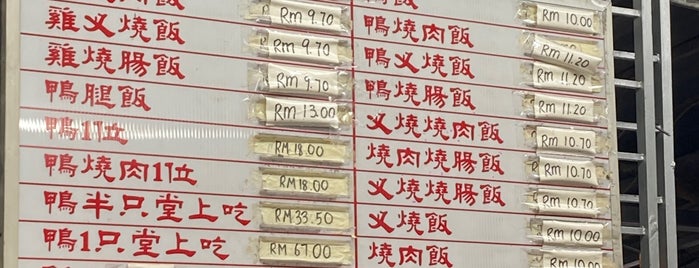 飯 RM 9.70
雞义燒飯 RM 9.70
雞燒腸飯 RM 9.70
鴨腿飯 RM 13.00
鴨1位 RM 18.00
鴨燒肉1位 RM 18.00
鴨半只堂上吃 RM 33.50
鴨1只堂上吃 RM 67.00
飯 RM 10.00
鴨燒肉飯 RM 11.20
鴨义燒飯 RM 11.20
鴨燒腸飯 RM 11.20
义燒燒肉飯 RM 10.70
燒肉燒腸飯 RM 10.70
义燒燒腸飯 RM 10.70
义燒飯 RM 10.00
燒肉飯 RM 10.00